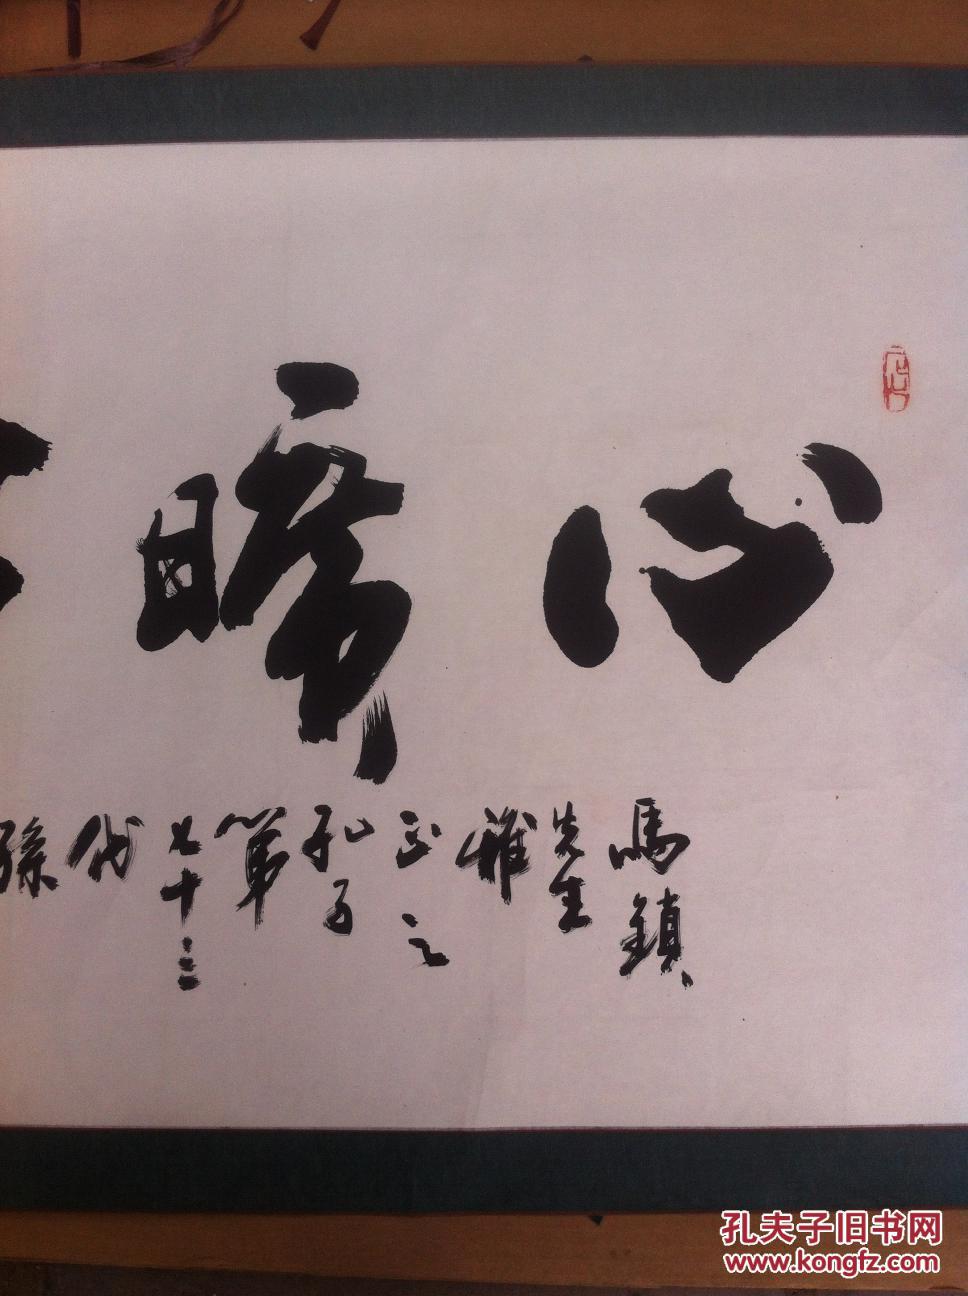 心曠
馬鎮
先生
雅
正之
孔子
第
七十三
代
孫
孔夫子旧书网
www.kongfz.com